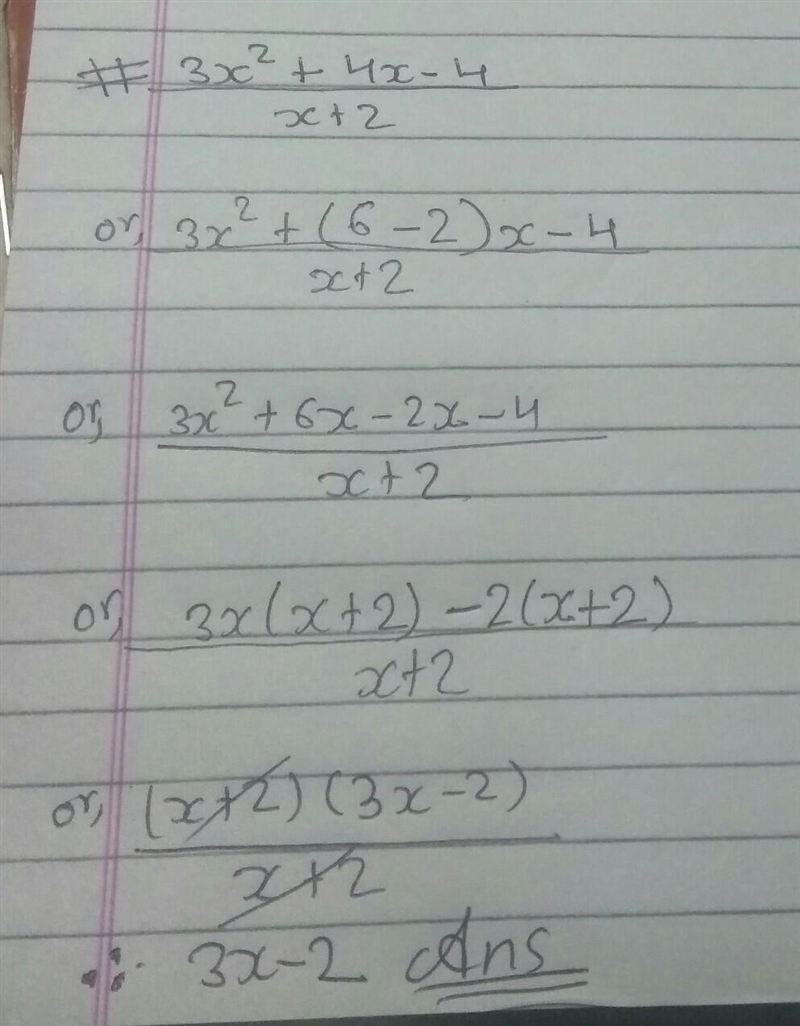 # 3x² + 4x - 4
x + 2
or, 3x² + (6 - 2)x - 4
x + 2
or, 3x² + 6x - 2x - 4
x + 2
or, 3x(x + 2) - 2(x + 2)
x + 2
or, (x + 2)(3x - 2)
x + 2
∴ 3x - 2 Ans